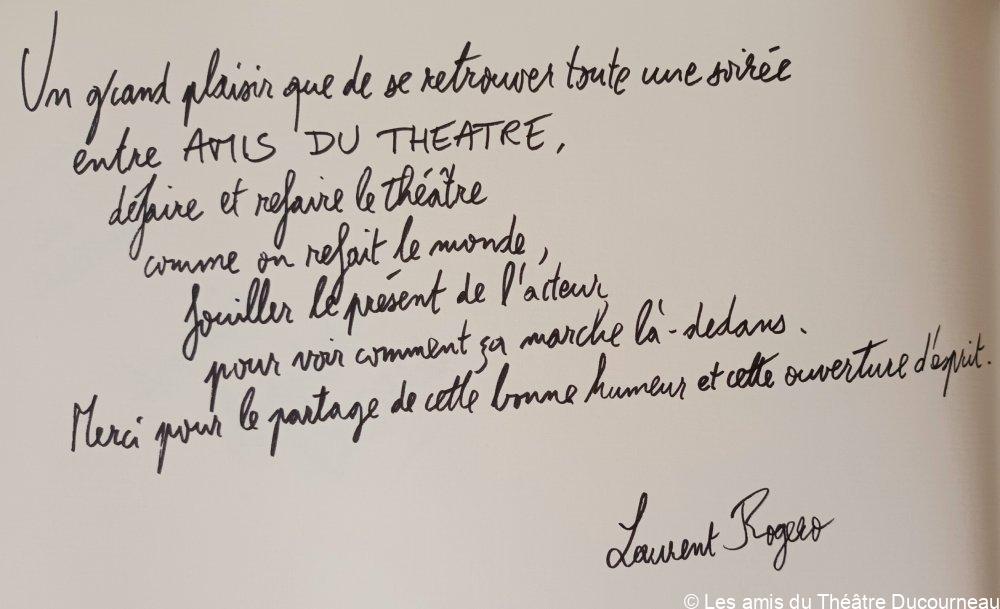 Un grand plaisir que de se retrouver toute une soirée
entre AMIS DU THEATRE,
défaire et refaire le théâtre
comme on refait le monde,
fouiller le présent de l'acteur,
pour voir comment ça marche là-dedans.
Merci pour le partage de cette bonne humeur et cette ouverture d'esprit.
Laurent Rogero
© Les amis du Théâtre Ducourneau